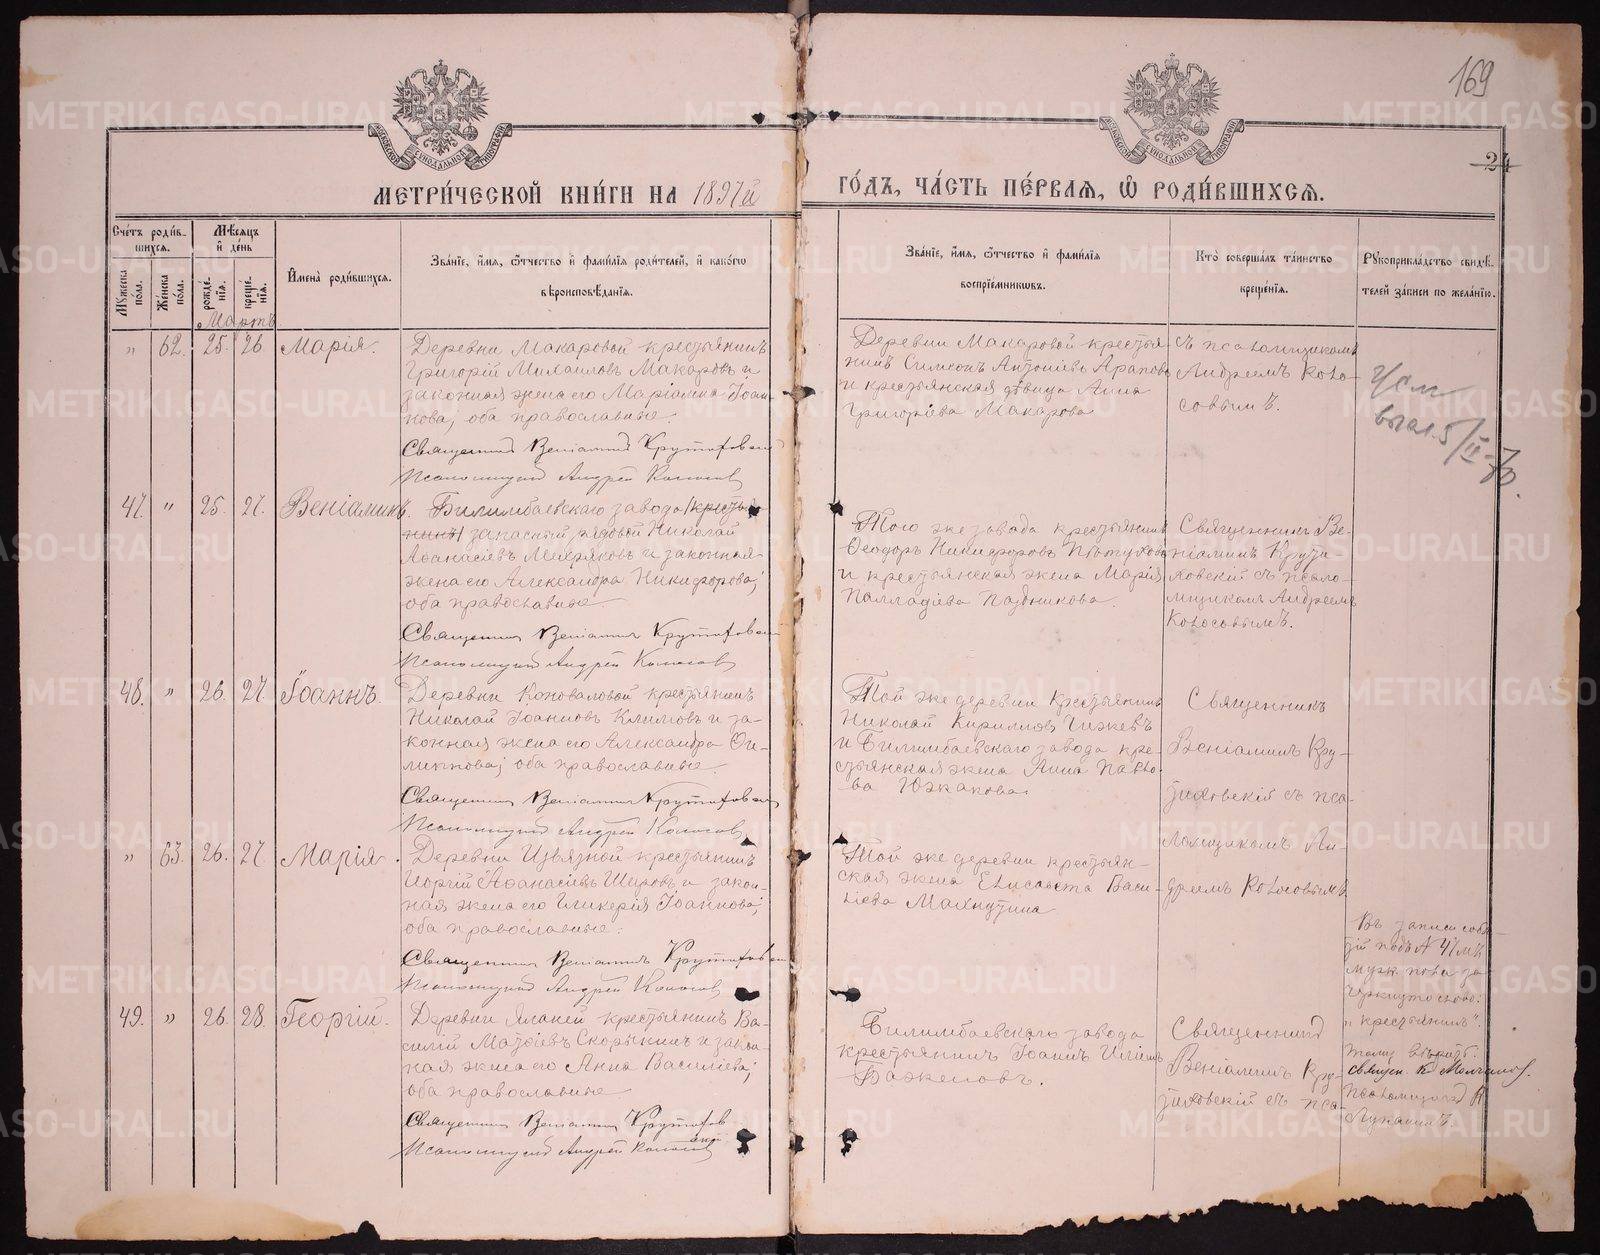 169
24
МОСКОВСКОЙ СѴНОДАЛЬНОЙ ТИПОГРАФІИ
МОСКОВСКОЙ СѴНОДАЛЬНОЙ ТИПОГРАФІИ
МЕТРИ́ЧЕСКОЙ КНИ́ГИ НА 1897й
ГО́ДЪ, ЧА́СТЬ ПЕ́РВАѦ, Ѿ РОДИ́ВШИХСѦ.
Сче́тъ роди́в-
шихсѧ.
Мꙋ́жеска по́ла.
Же́нска по́ла.
Мѣ́сѧцъ
и҆ де́нь
рожде́-
нїѧ.
креще́-
нїѧ.
И҆мена̀ роди́вшихсѧ.
Зва́нїе, и҆́мѧ, ѻ҆́тчество и҆ фами́лїѧ роди́телей, и҆ како́гѡ
вѣроисповѣ́данїѧ.
Зва́нїе, и҆́мѧ, ѻ҆́тчество и҆ фами́лїѧ
воспрїе́мникѡвъ.
Кто̀ соверша́лъ та́инство
креще́нїѧ.
Рꙋкоприкла́дство свидѣ́-
телей за́писи по жела́нїю.
Мартъ
" 62. 25. 26. Марія.
Деревни Макаровой крестьянинъ
Григорій Михаиловъ Макаровъ и
законная жена его Маріамна Іоан-
нова, оба православные.
Священникъ Веніаминъ Крутиховскій
Псаломщикъ Андрей Колосовъ
Деревни Макаровой крестья-
нинъ Симеонъ Антоніевъ Араповъ
и крестьянская дѣвица Анна
Григоріева Макарова
съ псаломщикомъ
Андреемъ Коло-
совымъ.
47. " 25. 27. Веніаминъ.
Билимбаевскаго завода /крестья-
нинъ/ запасный рядовой Николай
Аѳанасіевъ и законная
жена его Александра Никифорова;
оба православные.
Священникъ Веніаминъ Крутиховскій
Псаломщикъ Андрей Колосовъ
Того же завода крестьянинъ
Ѳеодоръ Никифоровъ Пѣтуховъ
и крестьянская жена Марія
Палладіева Паздникова.
Священникъ Ве-
ніаминъ Крути-
ховскій съ псало-
мщикомъ Андреемъ
Колосовымъ.
48. " 26. 27. Іоаннъ.
Деревни Коноваловой крестьянинъ
Николай Іоанновъ Климовъ и за-
конная жена его Александра
оба православные.
Священникъ Веніаминъ Крутиховскій
Псаломщикъ Андрей Колосовъ
Той же деревни крестьянинъ
Николай Кирилловъ
и Билимбаевскаго завода кре-
стьянская жена Анна Павло-
ва Южакова
Священникъ
Веніаминъ Кру-
тиховскій съ пса-
ломщикомъ Ан-
дреемъ Колосовымъ
" 63. 26. 27. Марія.
Деревни Извязной крестьянинъ
Георгій Аѳанасіевъ Шировъ и закон-
ная жена его Гликерія Іоаннова;
оба православные.
Священникъ Веніаминъ Крутиховскій
Псаломщикъ Андрей Колосовъ
Той же деревни крестьян-
ская жена Елисавета Васи-
ліева Махнутина
49. " 26. 28. Георгій.
Деревни Яланей крестьянинъ Ва-
силій Матѳіевъ Скорынинъ и закон-
ная жена его Анна Василіева;
оба православные
Священникъ Веніаминъ Крутиховскій
Псаломщикъ Андрей Колосовъ
Билимбаевскаго завода
крестьянинъ Іоаннъ Иліинъ
Баженовъ.
Священникъ
Веніаминъ Кру-
тиховскій съ пса-
Въ записи
подъ № 47 мъ
муж. пола за-
черкнуто слово:
"крестьянинъ".